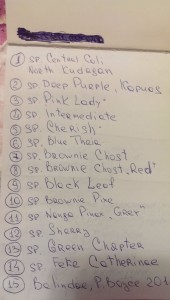 1 sp. Central Celi,
North Kudagan
2 sp Deep Purple, Kapuas
3 sp Pink Lady"
4 sp Intermediate
5 sp. Cherish"
6 sp. Blue Theia
7 sp. Brownie Ghost
8 sp. Brownie Ghost „Red"
9 sp Black Leaf
10 sp Brownie Pine
11 sp Nanga Pinoh
12 sp Sherry
13 sp Green Chapter
14 sp Feke Catherinae
15 Belindae, P. Bogee 201